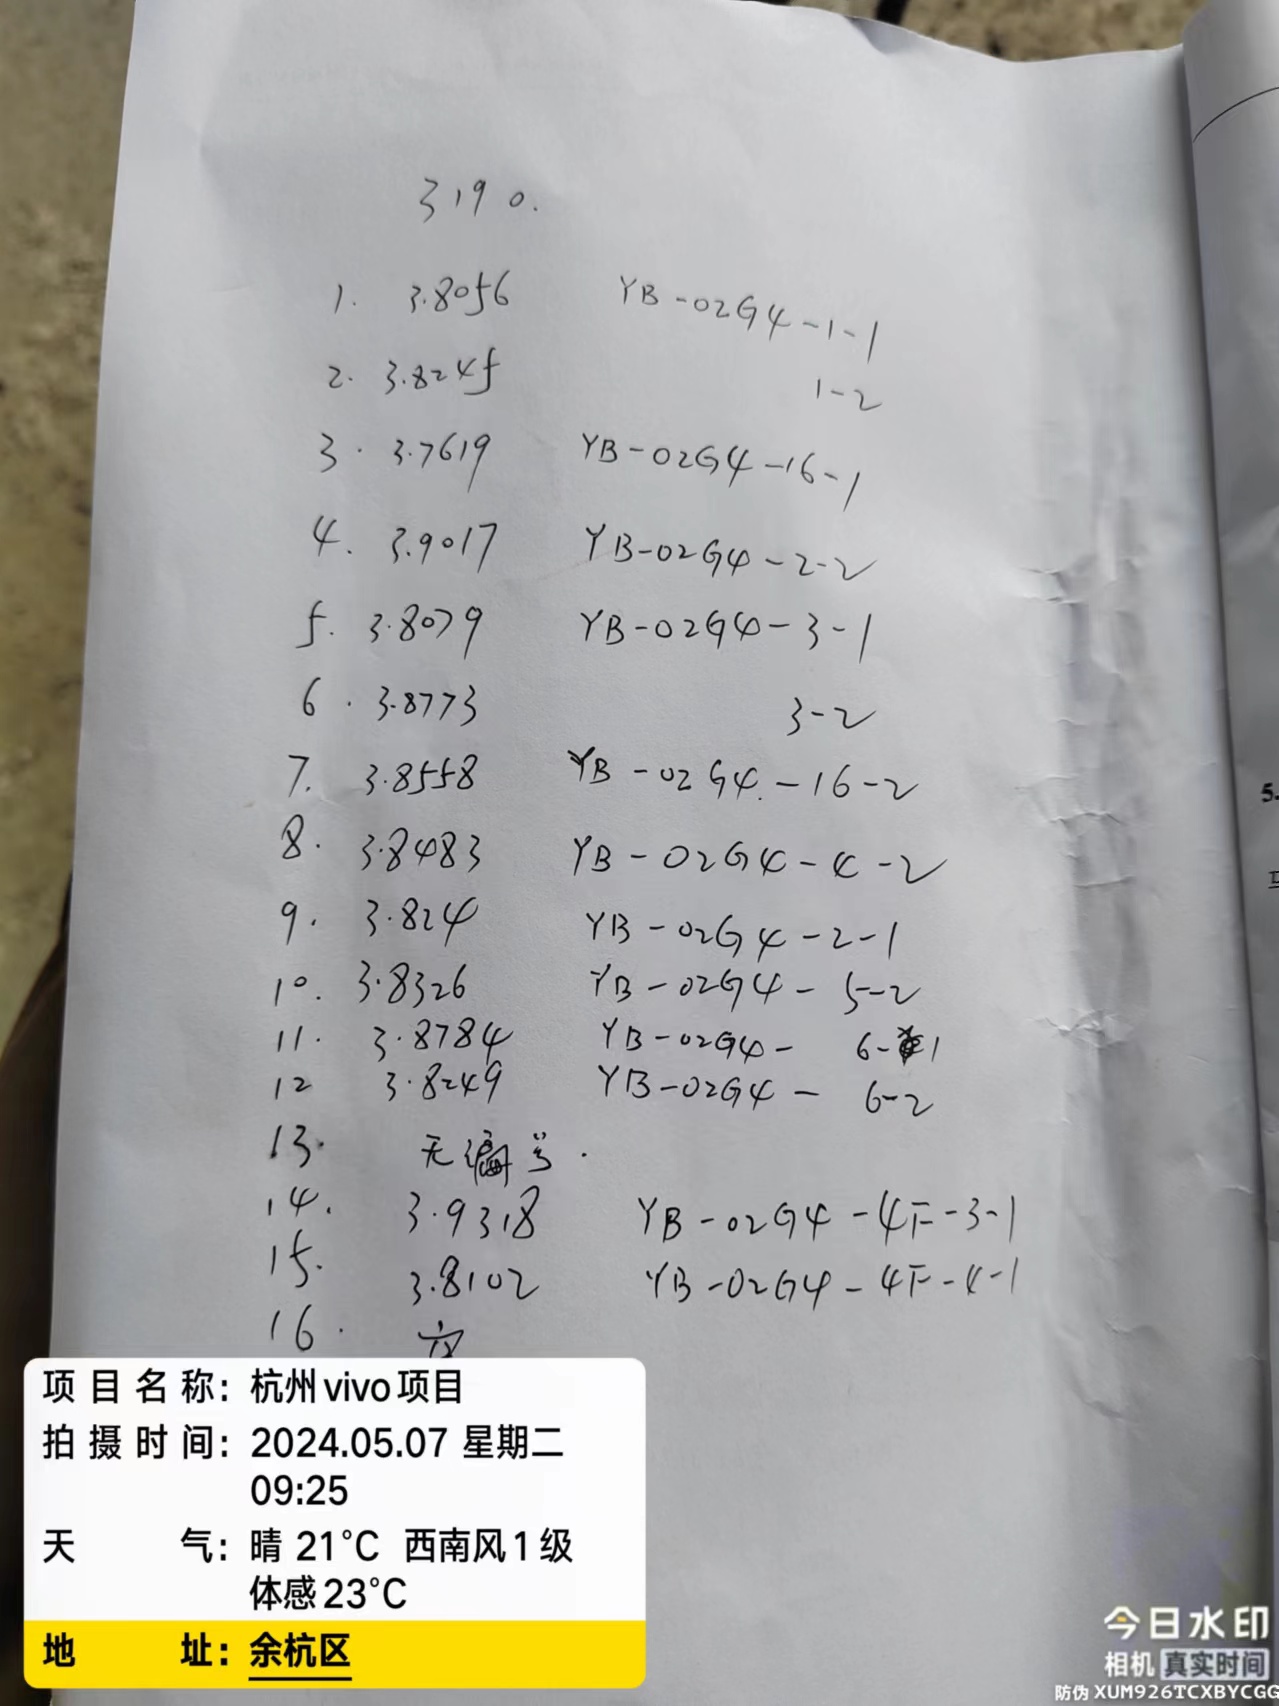 3190.
1. 3.8056 YB-02G4-1-1
2. 3.8245 1-2
3. 3.7619 YB-02G4-16-1
4. 3.9017 YB-02G4-2-2
5. 3.8079 YB-02G4-3-1
6. 3.8773 3-2
7. 3.8558 YB-02G4.-16-2
8. 3.8483 YB-02G4-4-2
9. 3.824 YB-02G4-2-1
10. 3.8326 YB-02G4-5-2
11. 3.8784 YB-02G4- 6-1
12 3.8249 YB-02G4- 6-2
13. 无编号.
14. 3.9318 YB-02G4-4F-3-1
15. 3.8102 YB-02G4-4F-4-1
16.
项目名称：杭州vivo项目
拍摄时间：2024.05.07 星期二
09:25
天气：晴 21℃ 西南风1级
体感23℃
地址：余杭区
5.
今日水印
相机 真实时间
防伪 XUM926TCXBYCGG